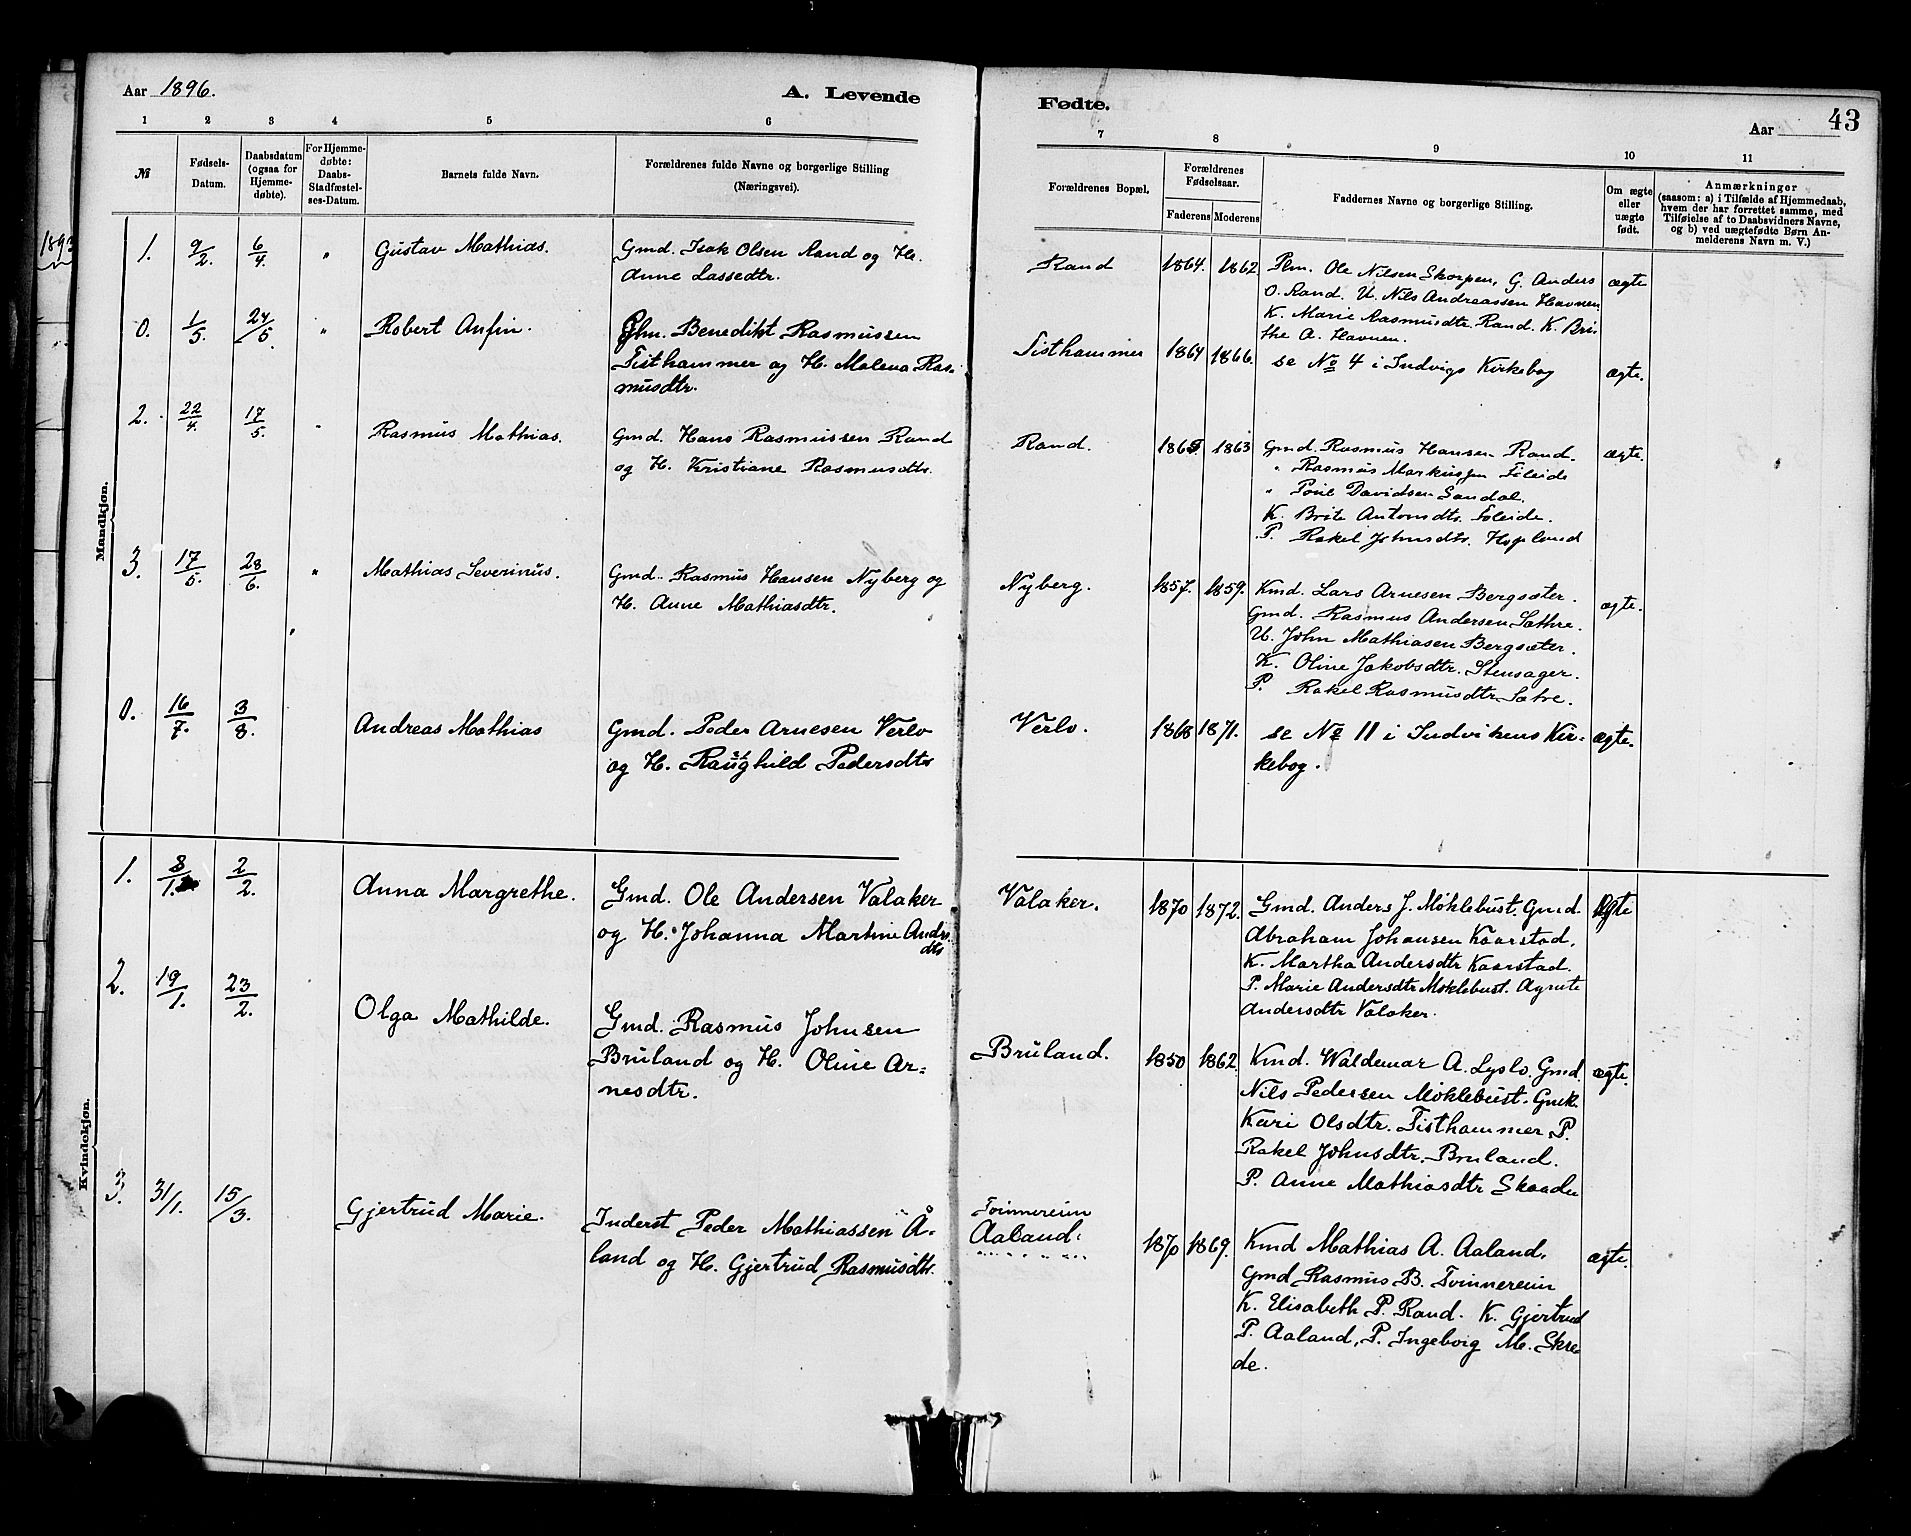 Aar 1896.
A. Levende
Fødte.
Aar
43
1 2 3 4 5 6
7 8 9 10 11
№
Fødsels-
Datum.
Daabsdatum
(ogsaa for
Hjemme-
døbte).
For Hjemme-
døbte:
Daabs-
Stadfæstel-
ses-Datum.
Barnets fulde Navn.
Forældrenes fulde Navne og borgerlige Stilling
(Næringsvei).
Forældrenes Bopæl.
Forældrenes
Fødselsaar.
Faderens Moderens
Faddernes Navne og borgerlige Stilling.
Om ægte
eller
uægte
født.
Anmærkninger
(saasom: a) i Tilfælde af Hjemmedaab,
hvem der har forrettet samme, med
Tilføielse af to Daabsvidners Navne,
og b) ved uægtefødte Børn An-
melderens Navn m. V.)
Mandkjøn.
1. 9/2. 6/4. " Gustav Mathias. Gmd. Isak Olsen Rand og H.
Anne Lassedtr.
Rand 1864. 1862 Plm. Ole Nilsen Skorpen, G. Anders
O. Rand. U. Nils Andreassen Havnen
K. Marie Rasmusdtr. Rand. K. Bri-
the A. Havnen.
ægte
0. 1/5. 24/5. " Robert Anfin. Plm. Benedikt Rasmussen
Tisthammer og H. Malena Ras-
musdtr.
Tisthammer 1864 1866. se No 4 i Indvigs Kirkebog ægte.
2. 22/4. 17/5. " Rasmus Mathias. Gmd. Hans Rasmussen Rand
og H. Kristiane Rasmusdtr.
Rand. 1865 1863 Gmd. Rasmus Hansen Rand.
" Rasmus Markussen Foleide
" Davidsen Sandal.
K. Brite Antonsdtr. Foleide.
P. Rakel Johnsdtr. Hopland
ægte.
3. 17/5. 28/6. " Mathias Severinus. Gmd. Rasmus Hansen Nyberg og
H. Anne Mathiasdtr.
Nyberg. 1857. 1859. Kmd. Lars Arnesen Bergsæter.
Gmd. Rasmus Andersen Sathre.
U. John Mathiasen Bergsæter.
K. Oline Jakobsdtr. Stensager.
P. Rakel Rasmusdtr Satre.
ægte.
0. 16/7. 3/8. Andreas Mathias Gmd. Peder Arnesen Verlo
og H. Raughild Pedersdtr
Verlo. 1868 1871. se No 11 i Indvikens Kir-
kebog.
ægte.
Kvindekjøn.
1. 8/1. 2/2. Anna Margrethe. Gmd. Ole Andersen Valaker
og H. Johanna Martine Andrs
dtr
Valaker. 1870 1872. Gmd. Anders J. Møklebust. Gmd.
Abraham Johansen Kaarstad.
K. Martha Andersdtr Kaarstad.
P. Marie Andersdtr Møklebust. Agnete
Andersdtr Valaker.
Ægte
2. 19/1. 23/2. Olga Mathilde. Gmd. Rasmus Johnsen
Bruland og H. Oline Ar-
nesdtr.
Bruland. 1850 1862. Kmd. Waldemar A. Lyslo. Gmd.
Nils Pedersen Møklebust. Gmk.
Kari Olsdtr. Tisthammer P.
Rakel Johnsdtr. Bruland.
P. Anne Mathiasdtr Skaaden
ægte.
3. 31/1. 15/3. Gjertrud Marie. Inderst Peder Mathiassen Å-
land og H. Gjertrud Rasmusdtr.
Tvinnereim
Aaland. 1870 1869. Kmd Mathias A. Aaland.
Gmd Rasmus B. Tvinnereim
K. Elisabeth P. Rand. K. Gjertrud
P. Aaland, P. Ingeborg M. Skre-
de.
ægte.